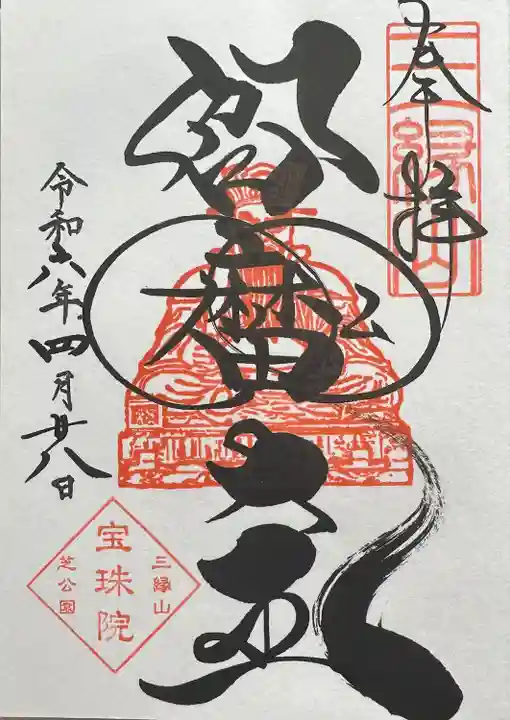 奉拝
三縁山
閻魔大王
令和六年四月廿八日
三縁山
宝珠院
芝公園